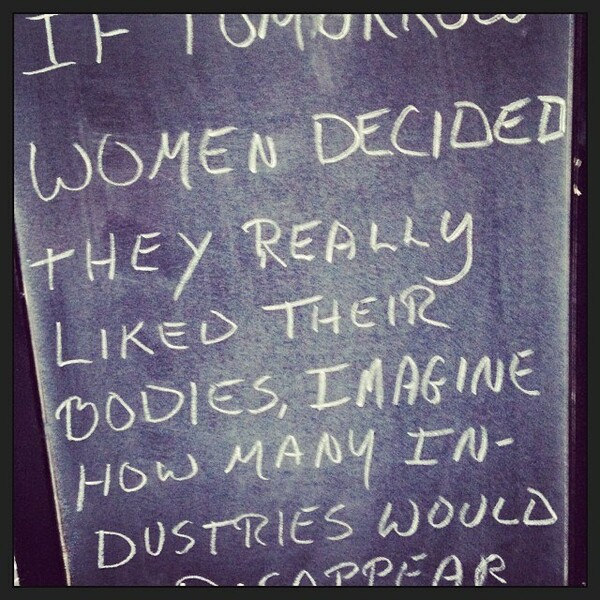 IF TOMORROW
WOMEN DECIDED
THEY REALLY
LIKED THEIR
BODIES, IMAGINE
HOW MANY IN-
DUSTRIES WOULD
DISAPPEAR